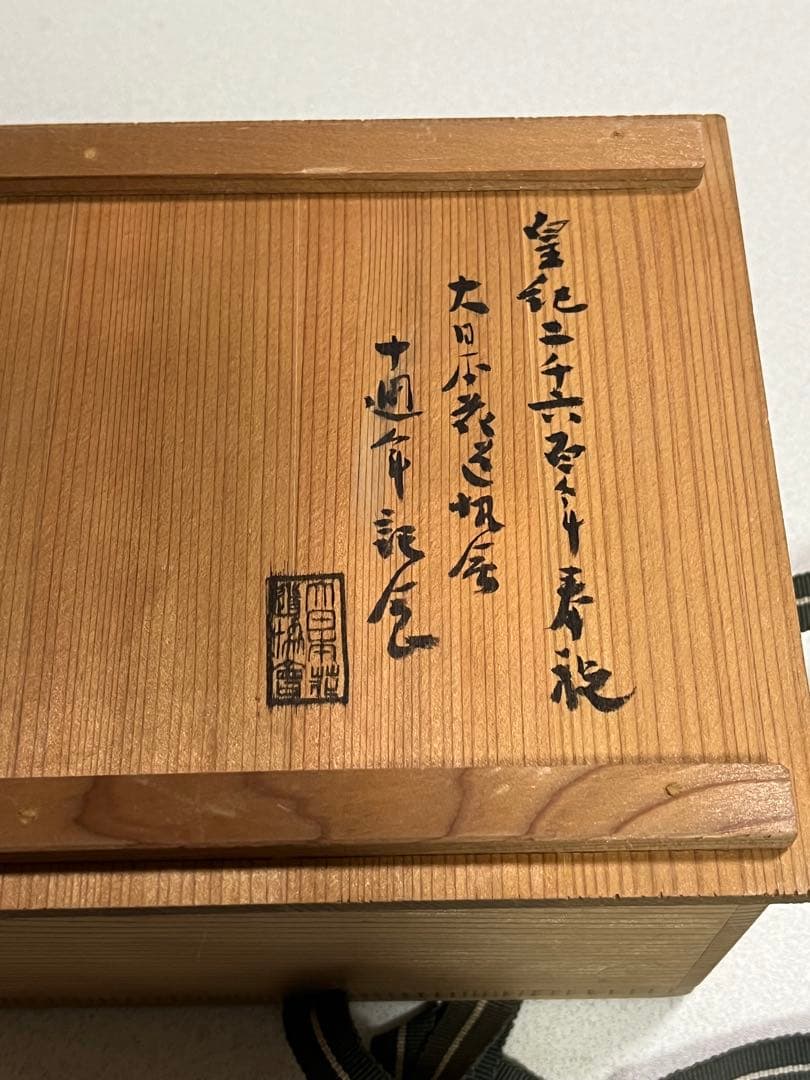 皇紀二千六百年奉祝
大日本花道協会
十週年記念
大日本花
道協會